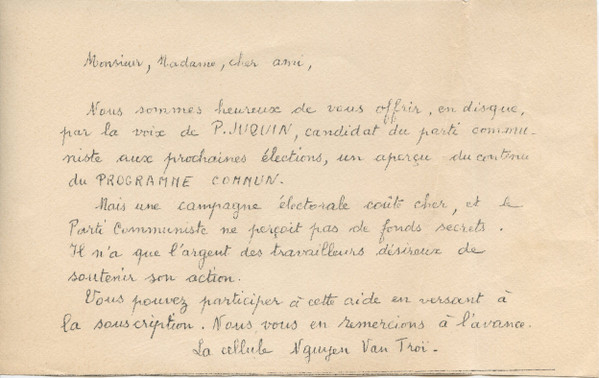 Monsieur, Madame, cher ami,
Nous sommes heureux de vous offrir, en disque,
par la voix de P. JUQUIN, candidat du parti commu-
niste aux prochaines élections, un aperçu du contenu
du PROGRAMME COMMUN.
Mais une campagne électorale coûte cher, et le
Parti Communiste ne perçoit pas de fonds secrets.
Il n'a que l'argent des travailleurs désireux de
soutenir son action.
Vous pouvez participer à cette aide en versant à
la souscription. Nous vous en remercions à l'avance.
La cellule Nguyen Van Troï.